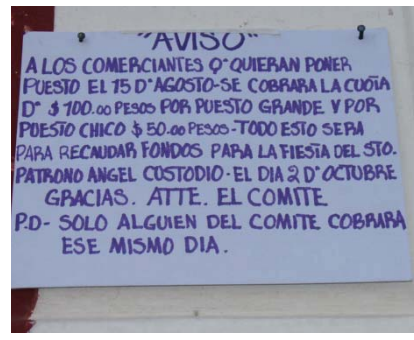 "AVISO"
A LOS COMERCIANTES Q' QUIERAN PONER
PUESTO EL 15 D' AGOSTO-SE COBRARA LA CUOTA
D' $ 100.00 PESOS POR PUESTO GRANDE Y POR
PUESTO CHICO $ 50.00 PESOS-TODO ESTO SERA
PARA RECAUDAR FONDOS PARA LA FIESTA DEL STO.
PATRONO ANGEL CUSTODIO-EL DIA 2 D' OCTUBRE
GRACIAS. ATTE. EL COMITE
P.D- SOLO ALGUIEN DEL COMITE COBRARA
ESE MISMO DIA.